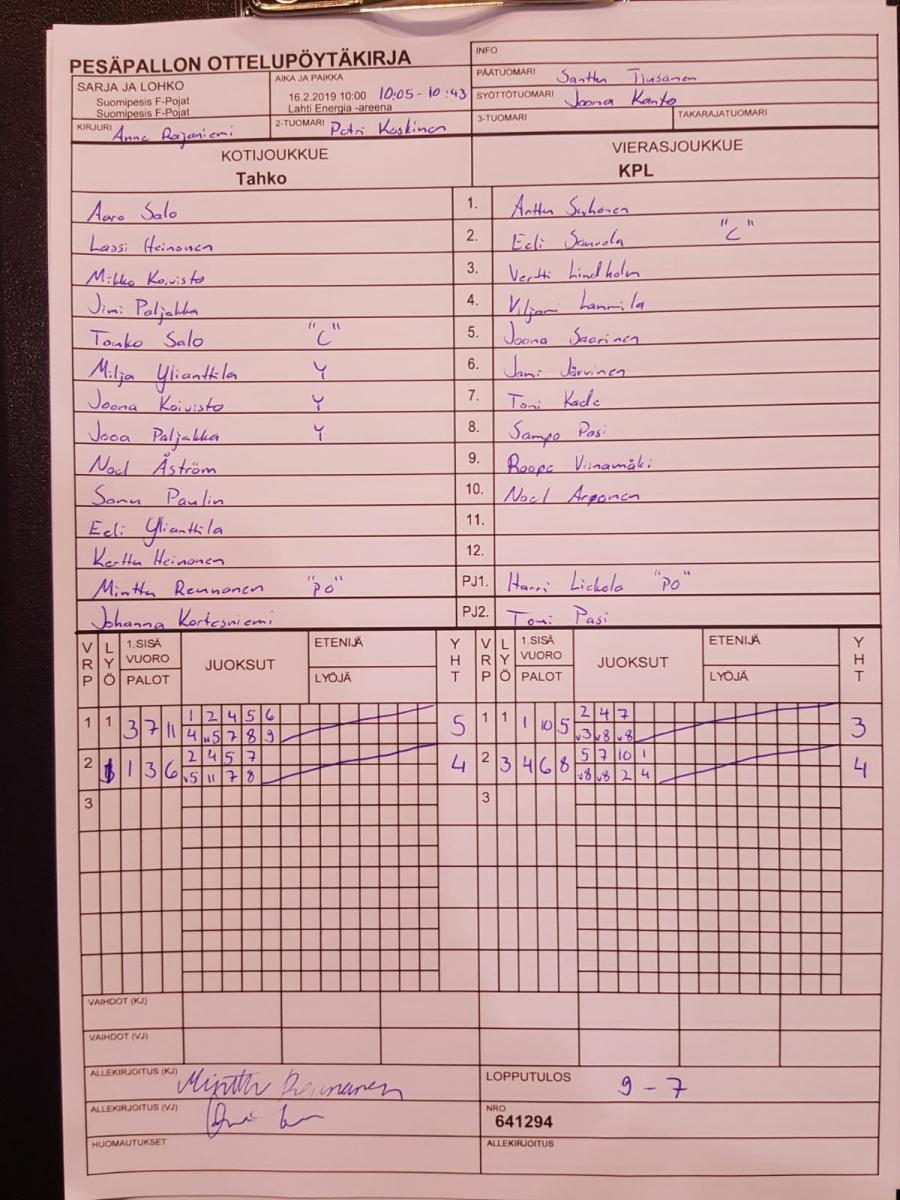 PESÄPALLON OTTELUPÖYTÄKIRJA
INFO
SARJA JA LOHKO
Suomipesis F-Pojat
Suomipesis F-Pojat
AIKA JA PAIKKA
16.2.2019 10:00 10:05-10:43
Lahti Energia -areena
PÄÄTUOMARI Santtu Tiusanen
SYÖTTÖTUOMARI Joona Kanto
KIRJURI Anne Rajaniemi
2-TUOMARI Petri Koskinen
3-TUOMARI
TAKARAJATUOMARI
KOTIJOUKKUE
Tahko
VIERASJOUKKUE
KPL
Aaro Salo 1. Anttu Suhonen
Lassi Heinonen 2. Eeli Saurola "C"
Mikko Koivisto 3. Vertti Lindholm
Jimi Paljakka 4. Viljami Lammila
Touko Salo "C" 5. Joona Saarinen
Milja Ylianttila Y 6. Jami Järvinen
Joona Koivisto Y 7. Toni Kade
Jooa Paljakka Y 8. Sampo Pasi
Noel Åström 9. Roope Viinamäki
Samu Paulin 10. Noel Arponen
Eeli Ylianttila 11.
Kerttu Heinonen 12.
Minttu Reunanen "PO" PJ1. Harri Liekola "PO"
Johanna Kortesniemi PJ2. Tomi Pasi
VRP LYÖ 1.SISÄ VUORO PALOT JUOKSUT ETENIJÄ LYÖJÄ YHT VRP LYÖ 1.SISÄ VUORO PALOT JUOKSUT ETENIJÄ LYÖJÄ YHT
1 1 3 7 11 1 2 4 5 6 5 1 1 1 10 5 2 4 7 3
4 v5 7 8 9 v3 v8 v8
2 1 1 3 6 2 4 5 7 4 2 3 4 6 8 5 7 10 1 4
v5 11 7 8 v8 v8 2 4
3 3
VAIHDOT (KJ)
VAIHDOT (VJ)
ALLEKIRJOITUS (KJ) Minttu Reunanen
LOPPUTULOS 9 - 7
ALLEKIRJOITUS (VJ)
NRO
641294
HUOMAUTUKSET
ALLEKIRJOITUS